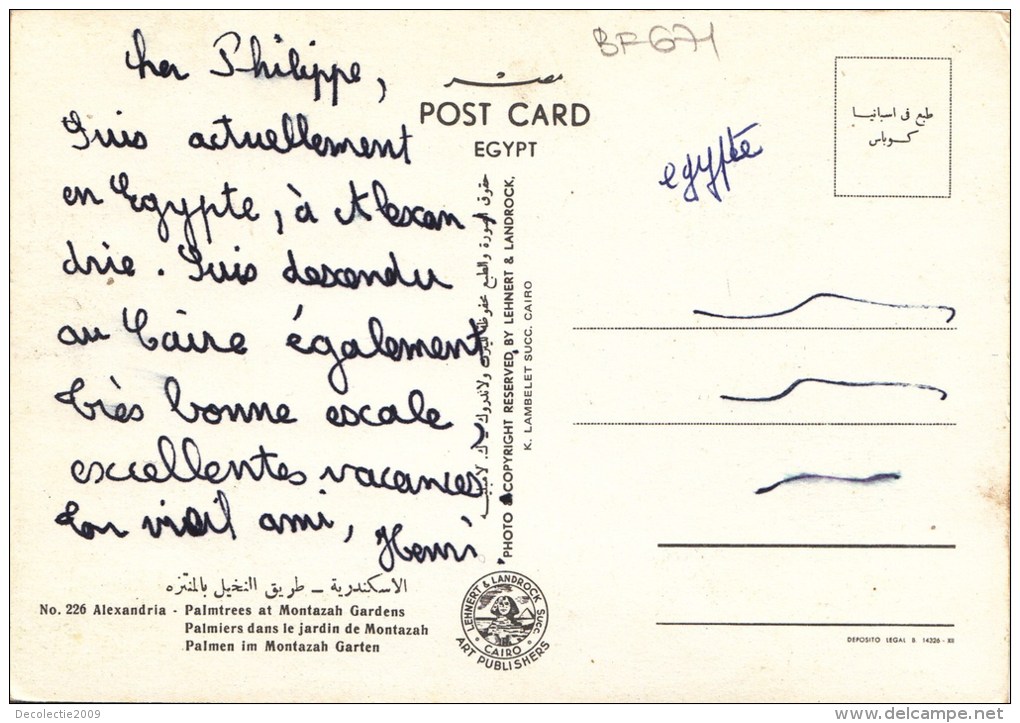 BF671
Cher Philippe,
Suis actuellement
en Egypte, à Alexan
drie. Suis descendu
au Caire également
très bonne escale
excellentes vacances
Ton vieil ami,
Henri
مصر
POST CARD
EGYPT
حقوق الصورة والطبع محفوظة
PHOTO & COPYRIGHT RESERVED BY LEHNERT & LANDROCK,
K. LAMBELET SUCC. CAIRO
egypte
طبع في اسبانيا
كوباس
الاسكندرية – طريق النخيل بالمنتزه
No. 226 Alexandria - Palmtrees at Montazah Gardens
Palmiers dans le jardin de Montazah
Palmen im Montazah Garten
LEHNERT & LANDROCK SUCC.
CAIRO
ART PUBLISHERS
DEPOSITO LEGAL B 14326 - XII
Decolectie2009
www.delcampe.net